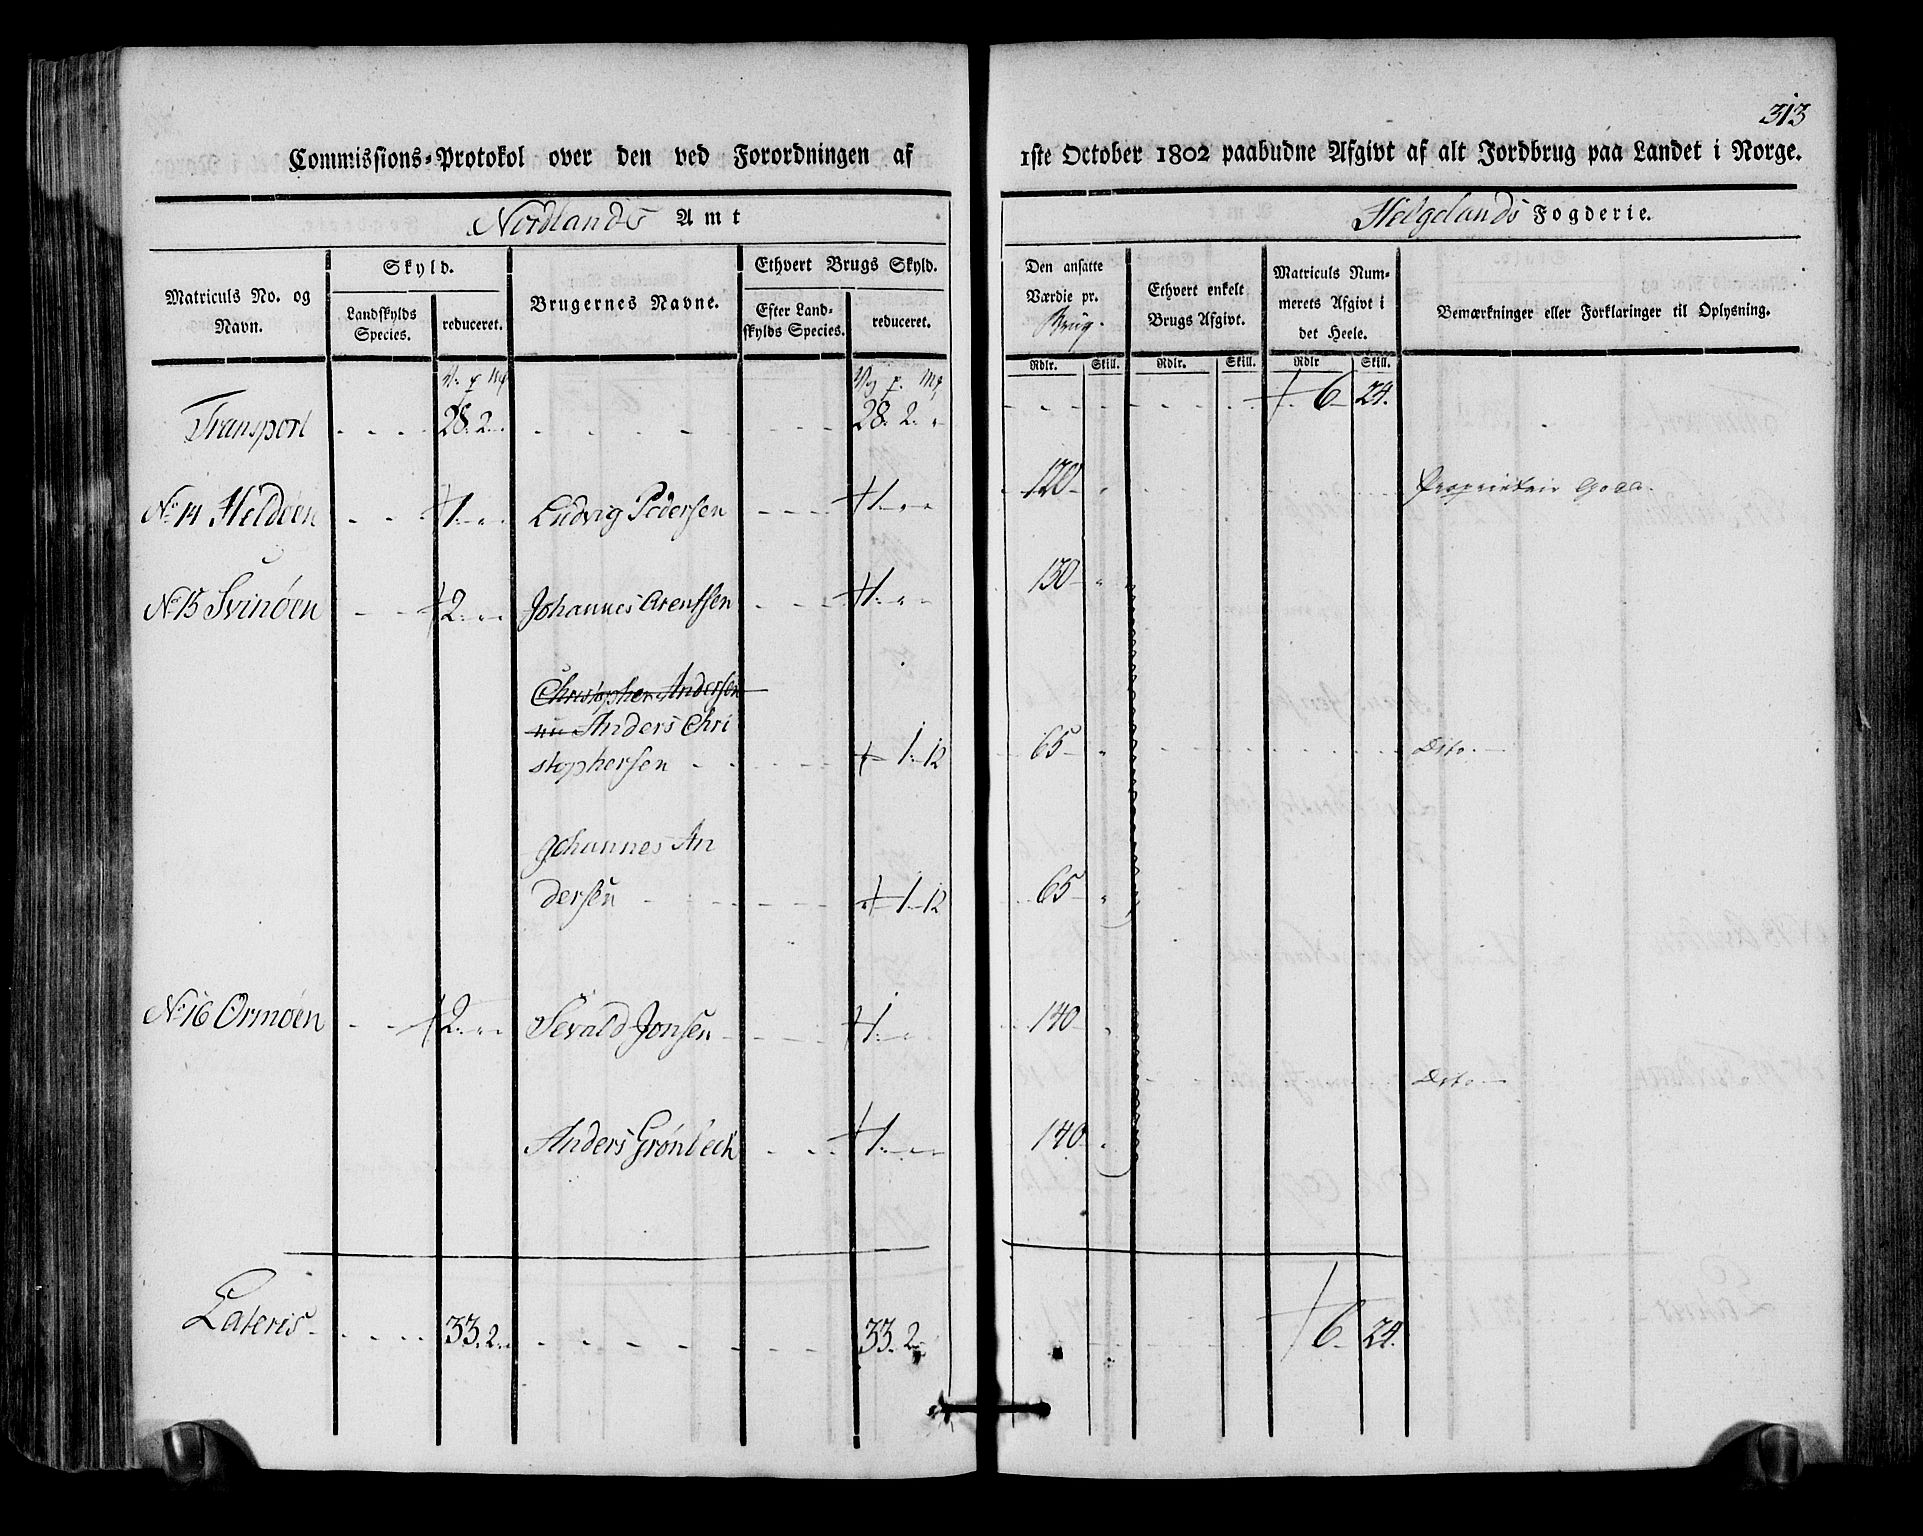 313
Commissions-Protokol over den ved Forordningen af 1ste October 1802 paabudne Afgivt af alt Jordbrug paa Landet i Norge.
Nordlands Amt Helgelands Fogderie.
Matriculs No. og Navn. Skyld. Landskylds Species. reduceret. Brugernes Navne. Ethvert Brugs Skyld. Efter Landskylds Species. reduceret. Den ansatte Værdie pr. Brug. Ethvert enkelt Brugs Afgivt. Matriculs Nummerets Afgivt i det Heele. Bemærkninger eller Forklaringer til Oplysning.
Rdlr. Skill. Rdlr. Skill. Rdlr Skill.
Transport 28. 2. 28. 2. 6 24.
No. 14 Heldøen 1 Ludvig Pedersen 1 120 Proprietair Gods.
No. 15 Svinøen 2 Johannes Arentsen 1 130
Christopher Andersen
nu Anders Chri
stophersen 1. 12 65 Dito.
Johannes An
dersen 1 12 65
No. 16 Ormøen 2 Sevald Jonsen 1 140
Dito
Anders Grønbech 1 140
Lateris 33. 2. 33. 2 6 24.